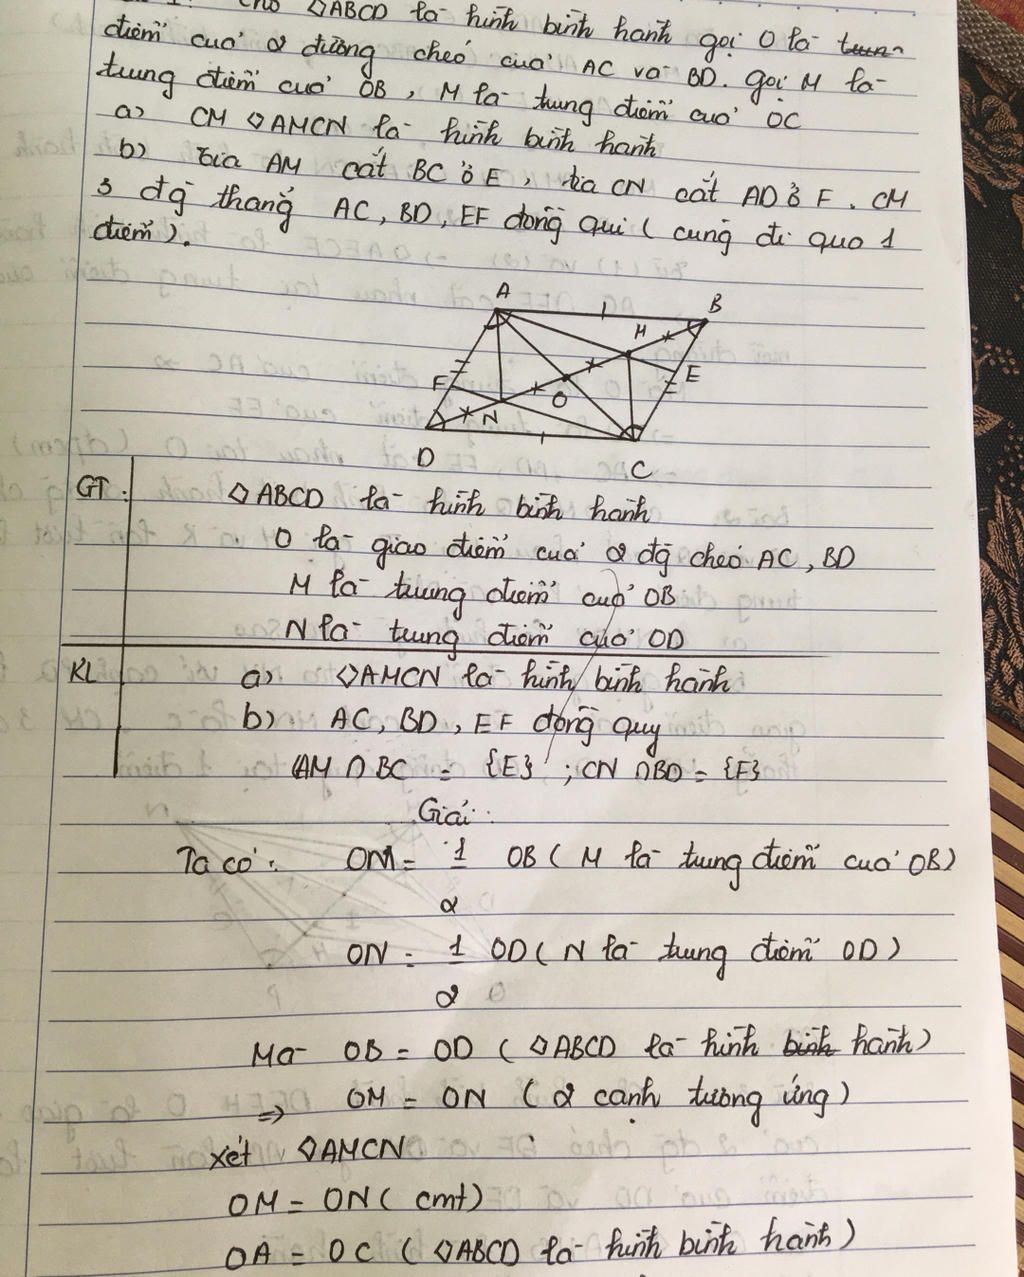 Cho ◇ABCD là hình bình hành gọi O là
điểm cuả 2 đường chéo cuả AC và BD. gọi M là
trung điểm cuả OB, M là trung điểm cuả OC
a) CM ◇AMCN là hình bình hành
b) tia AM cắt BC ở E, tia CN cắt AD ở F. CM
3 đg thẳng AC, BD, EF đồng qui ( cùng đi qua 1
điểm ).
A
B
M
E
F
O
N
D
C
GT: ◇ABCD là hình bình hành
O là giao điểm cuả 2 đg chéo AC, BD
M là trung điểm cuả OB
N là trung điểm cuả OD
KL a) ◇AMCN là hình bình hành
b) AC, BD, EF đồng quy
AM ∩ BC = {E} ; CN ∩ BD = {F}
Giải:
Ta có: OM = 1/2 OB ( M là trung điểm cuả OB)
ON = 1/2 OD ( N là trung điểm OD )
Mà OB = OD ( ◇ABCD là hình bình hành)
=> OM = ON ( 2 cạnh tương ứng )
xét ◇AMCN
OM = ON ( cmt)
OA = OC ( ◇ABCD là hình bình hành )